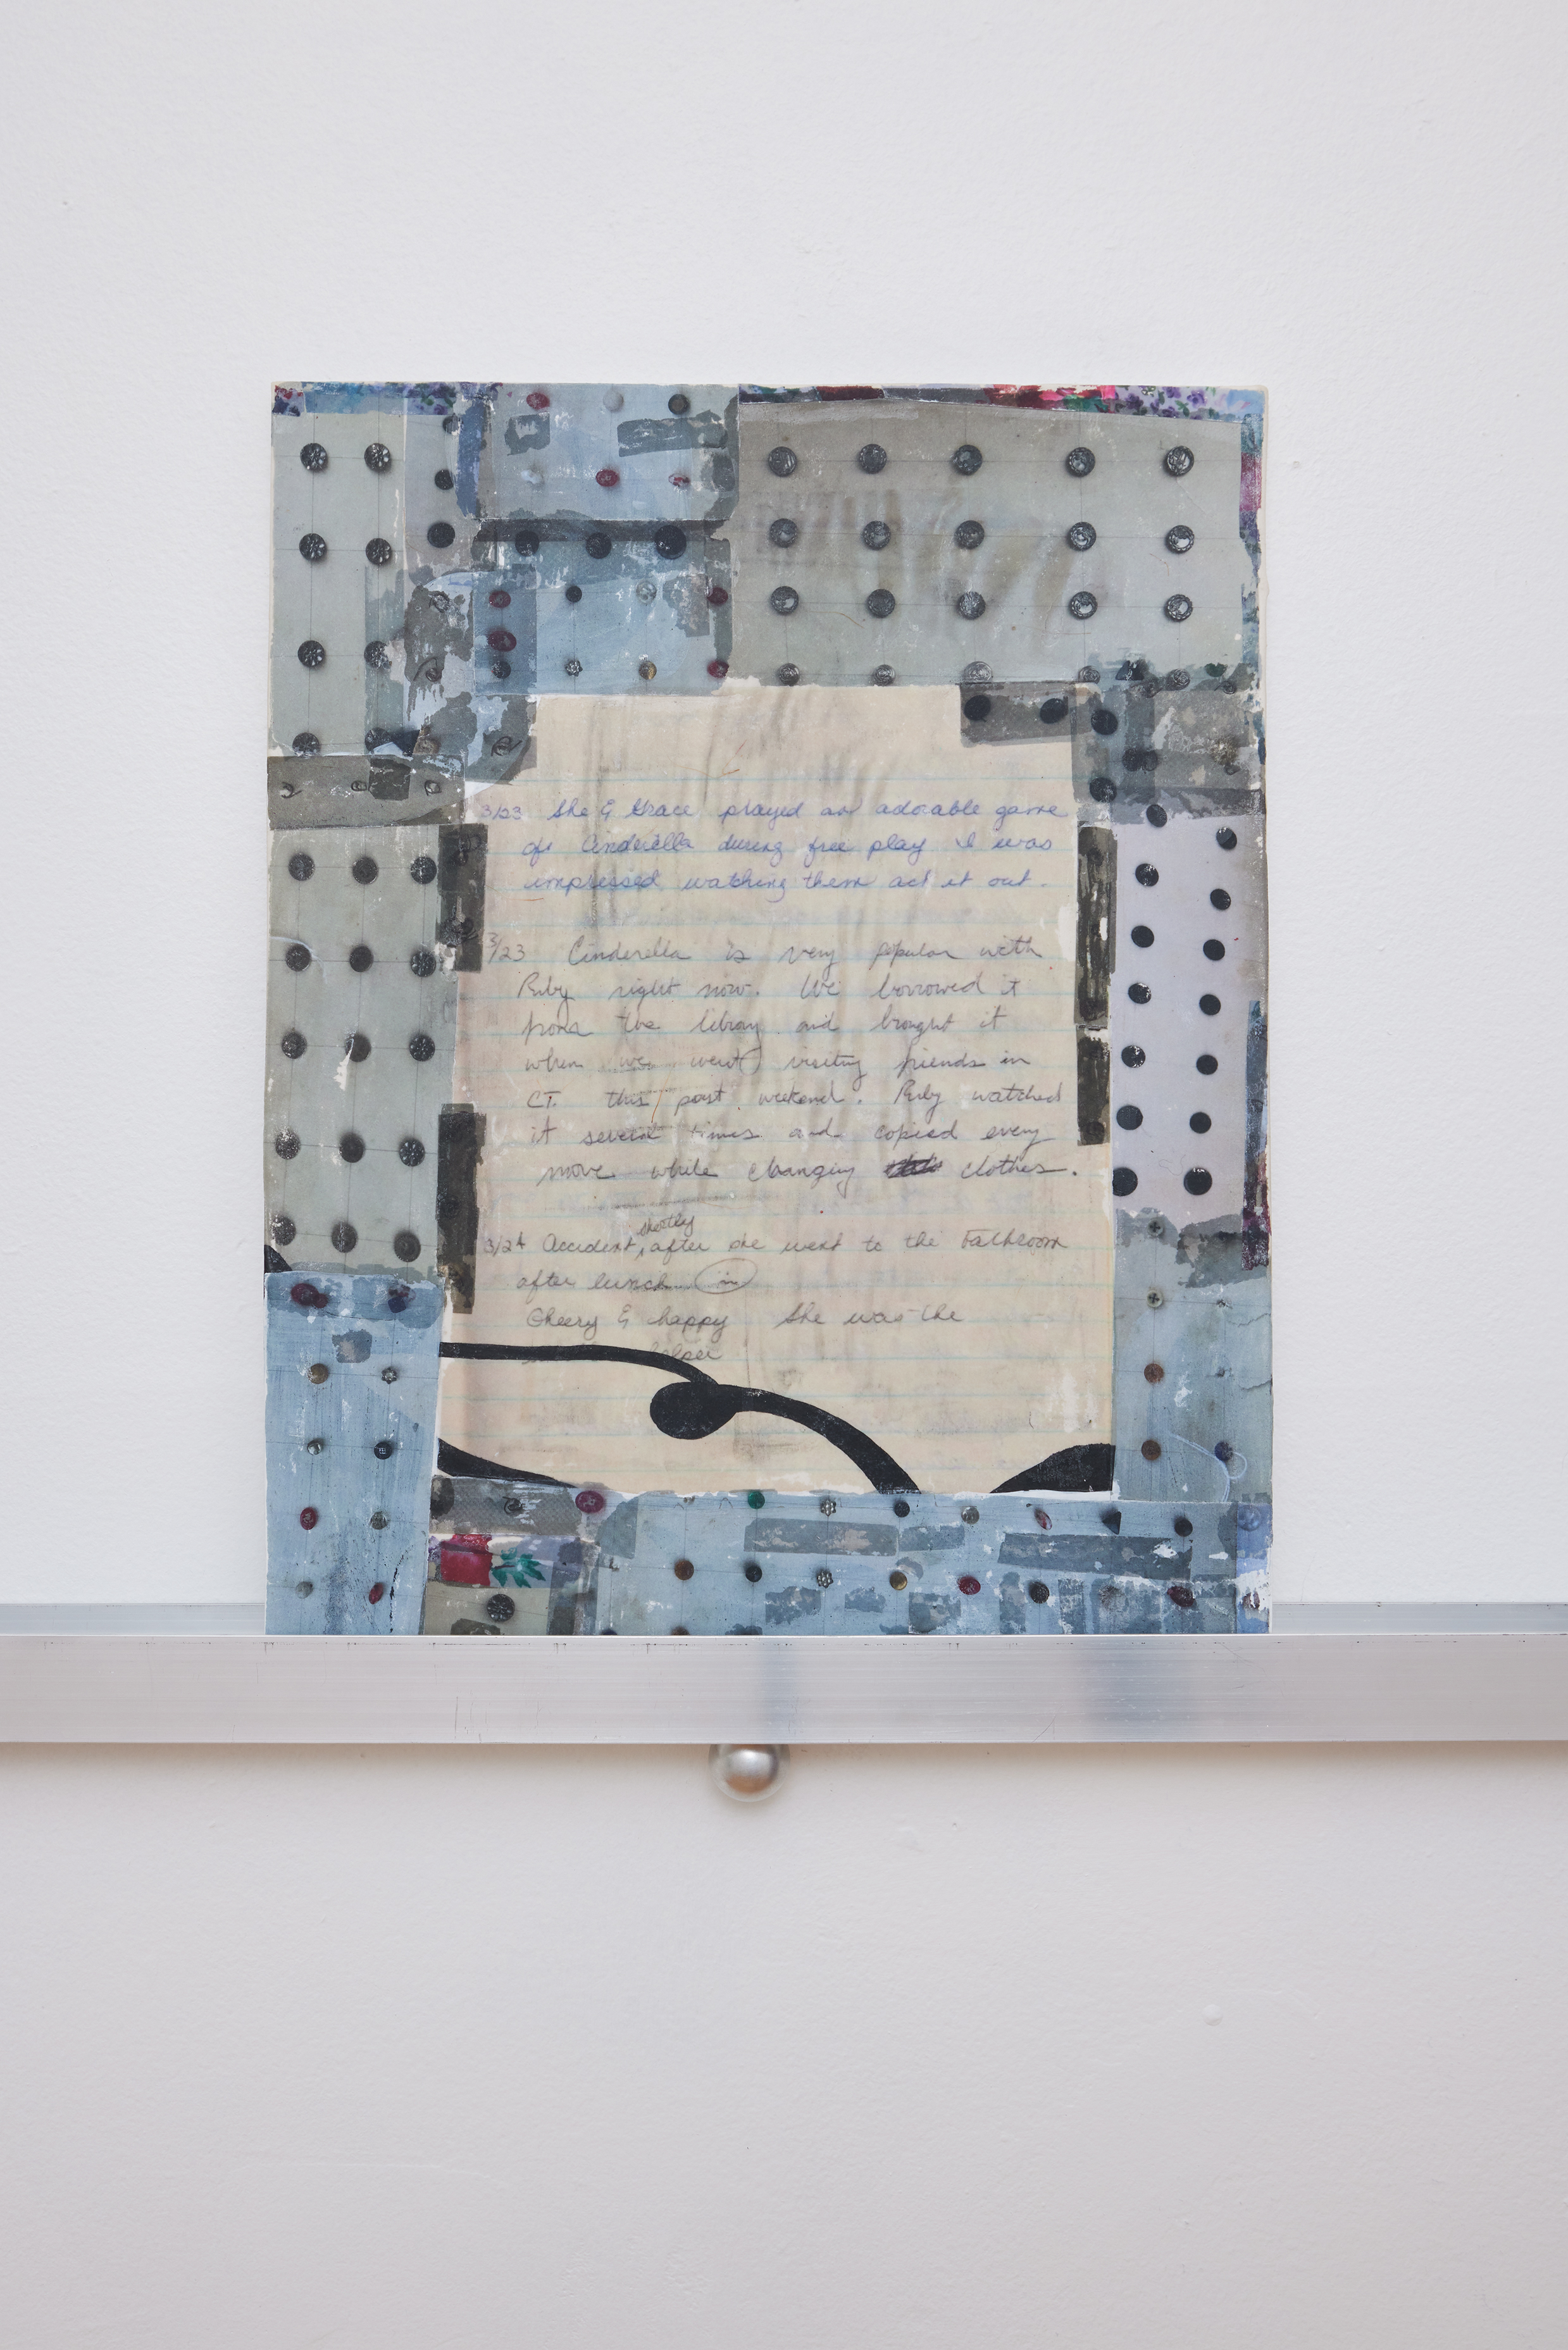 3/23 She & Grace played an adorable game
of Cinderella during free play I was
impressed watching them act it out.
3/23 Cinderella is very popular with
Ruby right now. We borrowed it
from the library and brought it
when we went visiting friends in
CT. this past weekend. Ruby watched
it several times and copied every
move while changing clothes.
shortly
3/24 Accident, after she went to the bathroom
after lunch in
Cheery & happy She was the
helper